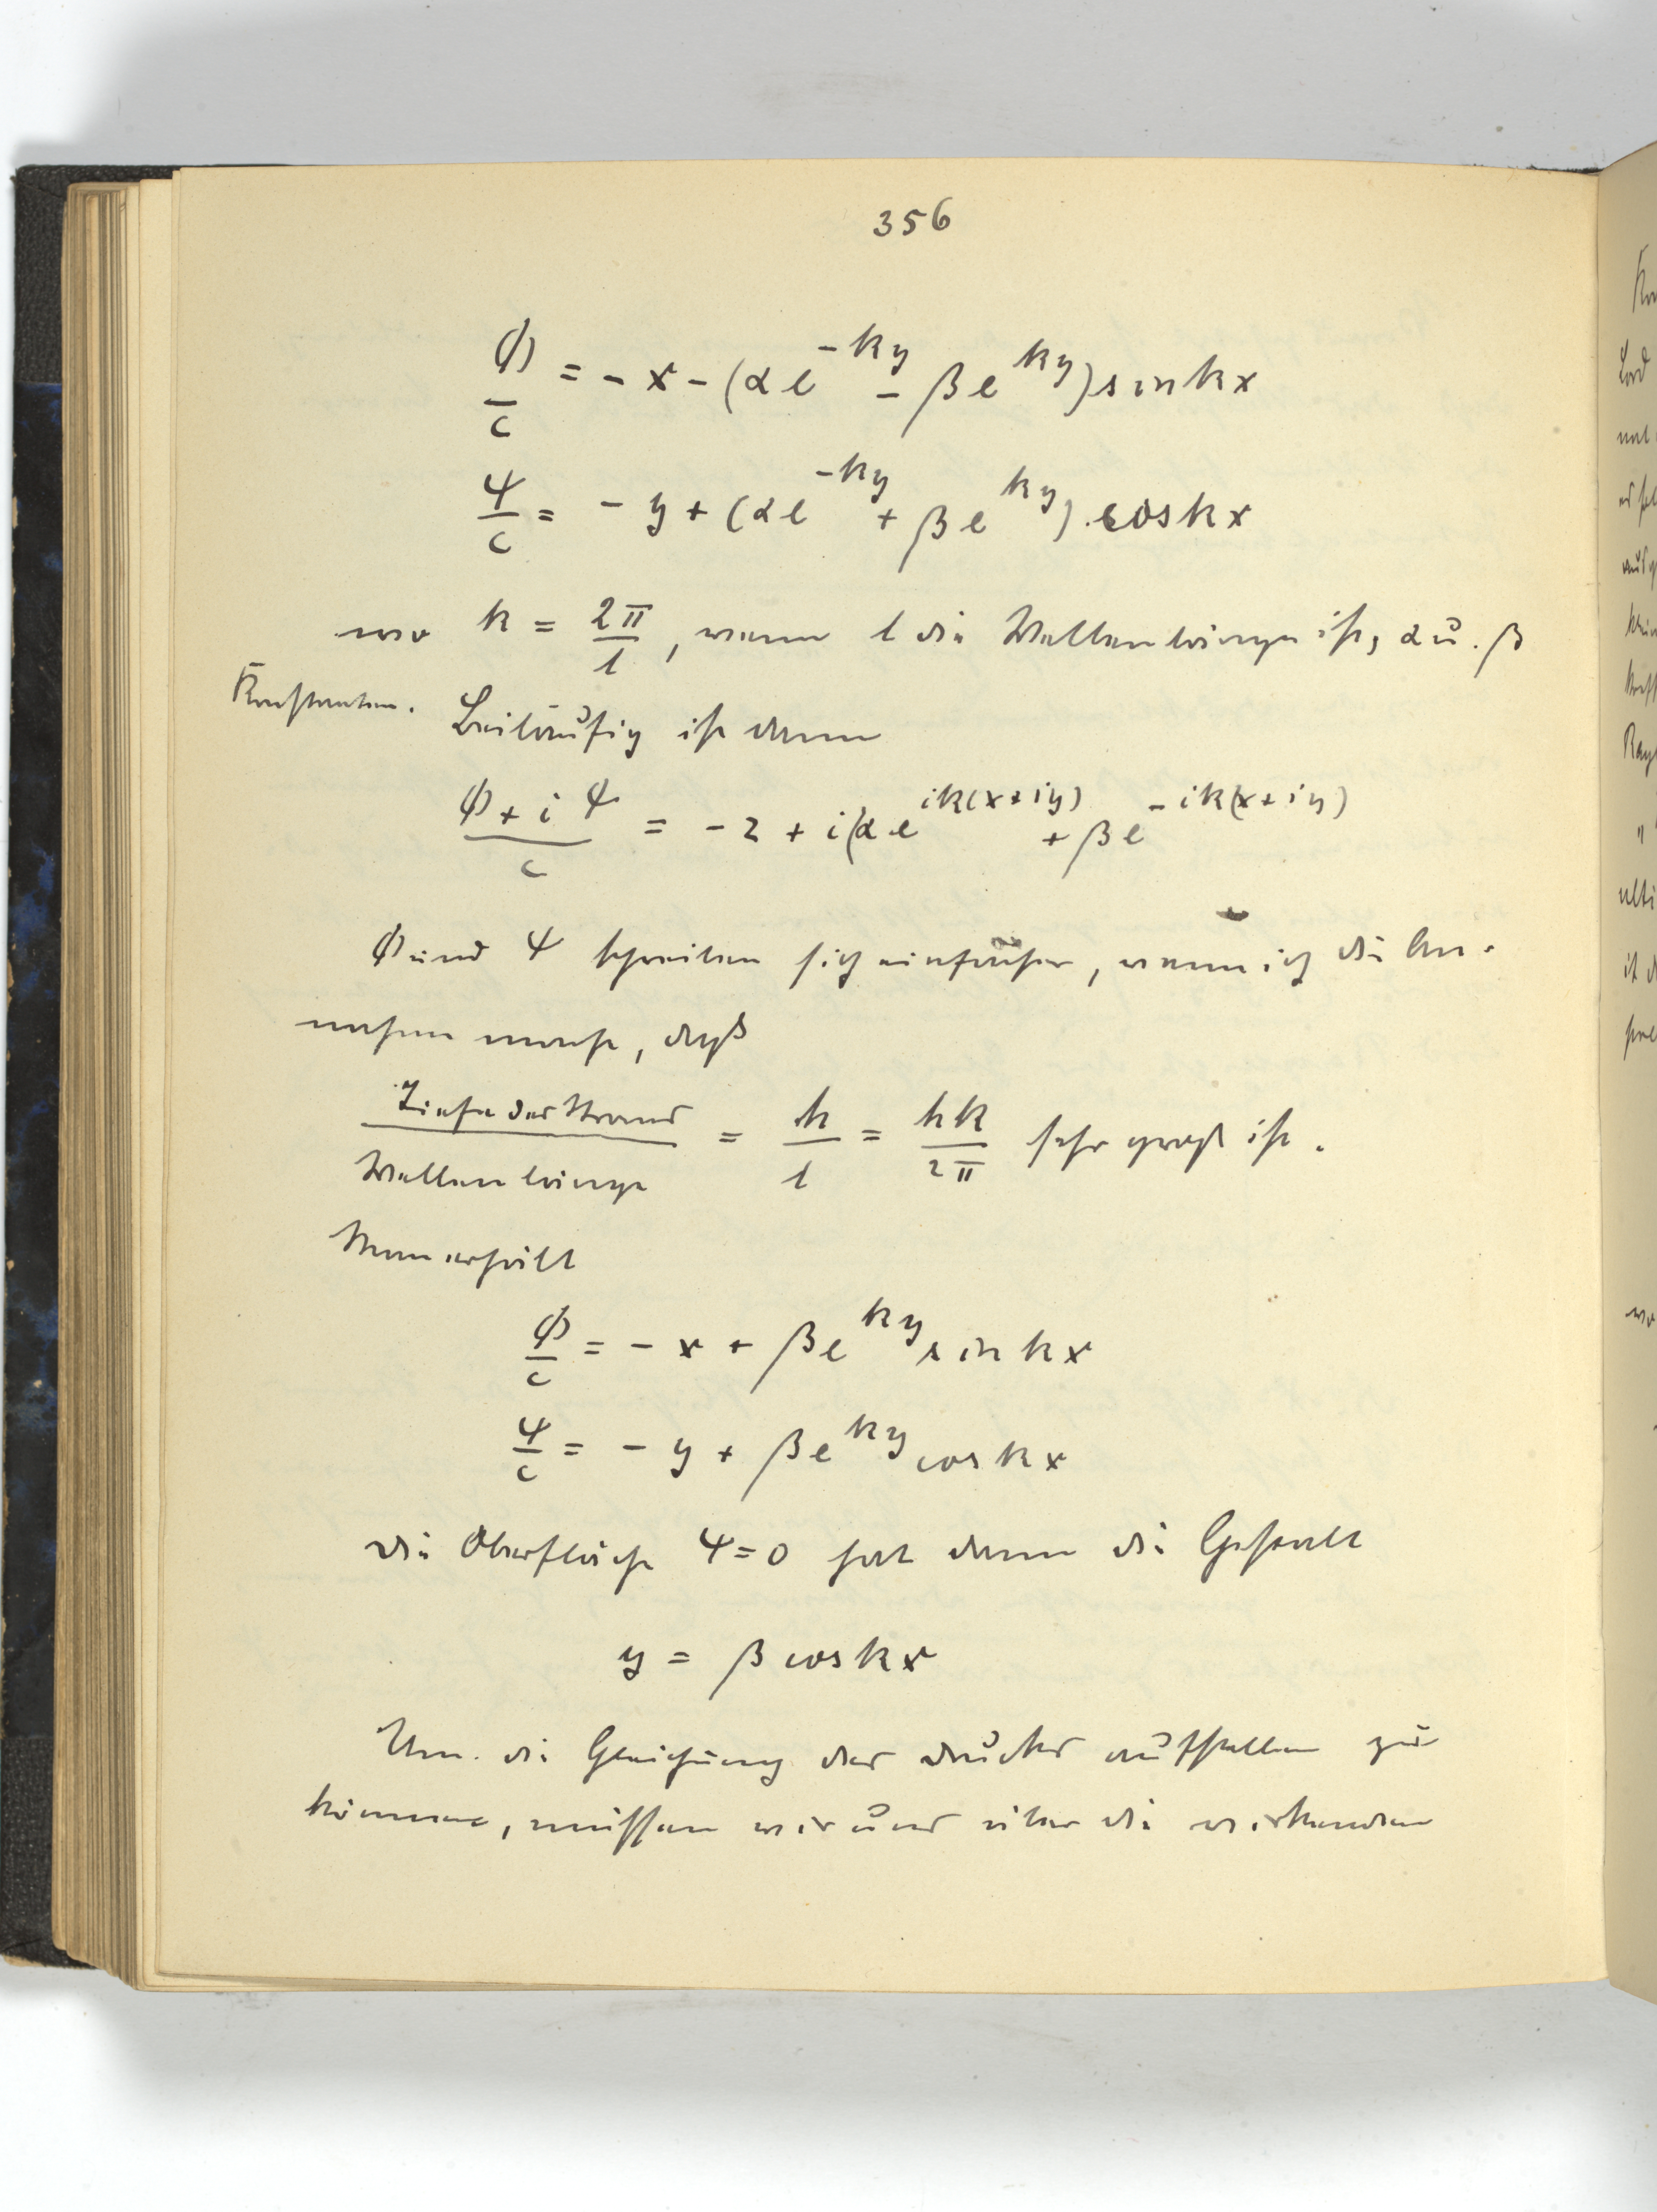 356
φ/c = - x - (α e^{-ky} - β e^{ky}) sin kx
ψ/c = - y + (α e^{-ky} + β e^{ky}) . cos kx
wo k = 2π/l, wenn l die Wellenlänge ist, α u. β
Konstanten. Beiläufig ist dann
(φ + iψ)/c = - z + i(α e^{ik(x+iy)} + β e^{-ik(x+iy)}
φ und ψ schreiben sich einfacher, wenn ich die An-
nahme mache, daß
Tiefe des Stroms/Wellenlänge = h/l = hk/2π sehr groß ist.
Man erhält
φ/c = - x + β e^{ky} sin kx
ψ/c = - y + β e^{ky} cos kx
Die Oberfläche ψ = 0 hat dann die Gestalt
y = β cos kx
Um die Gleichung des Druckes aufstellen zu
können, müssen wir uns über die wirkenden